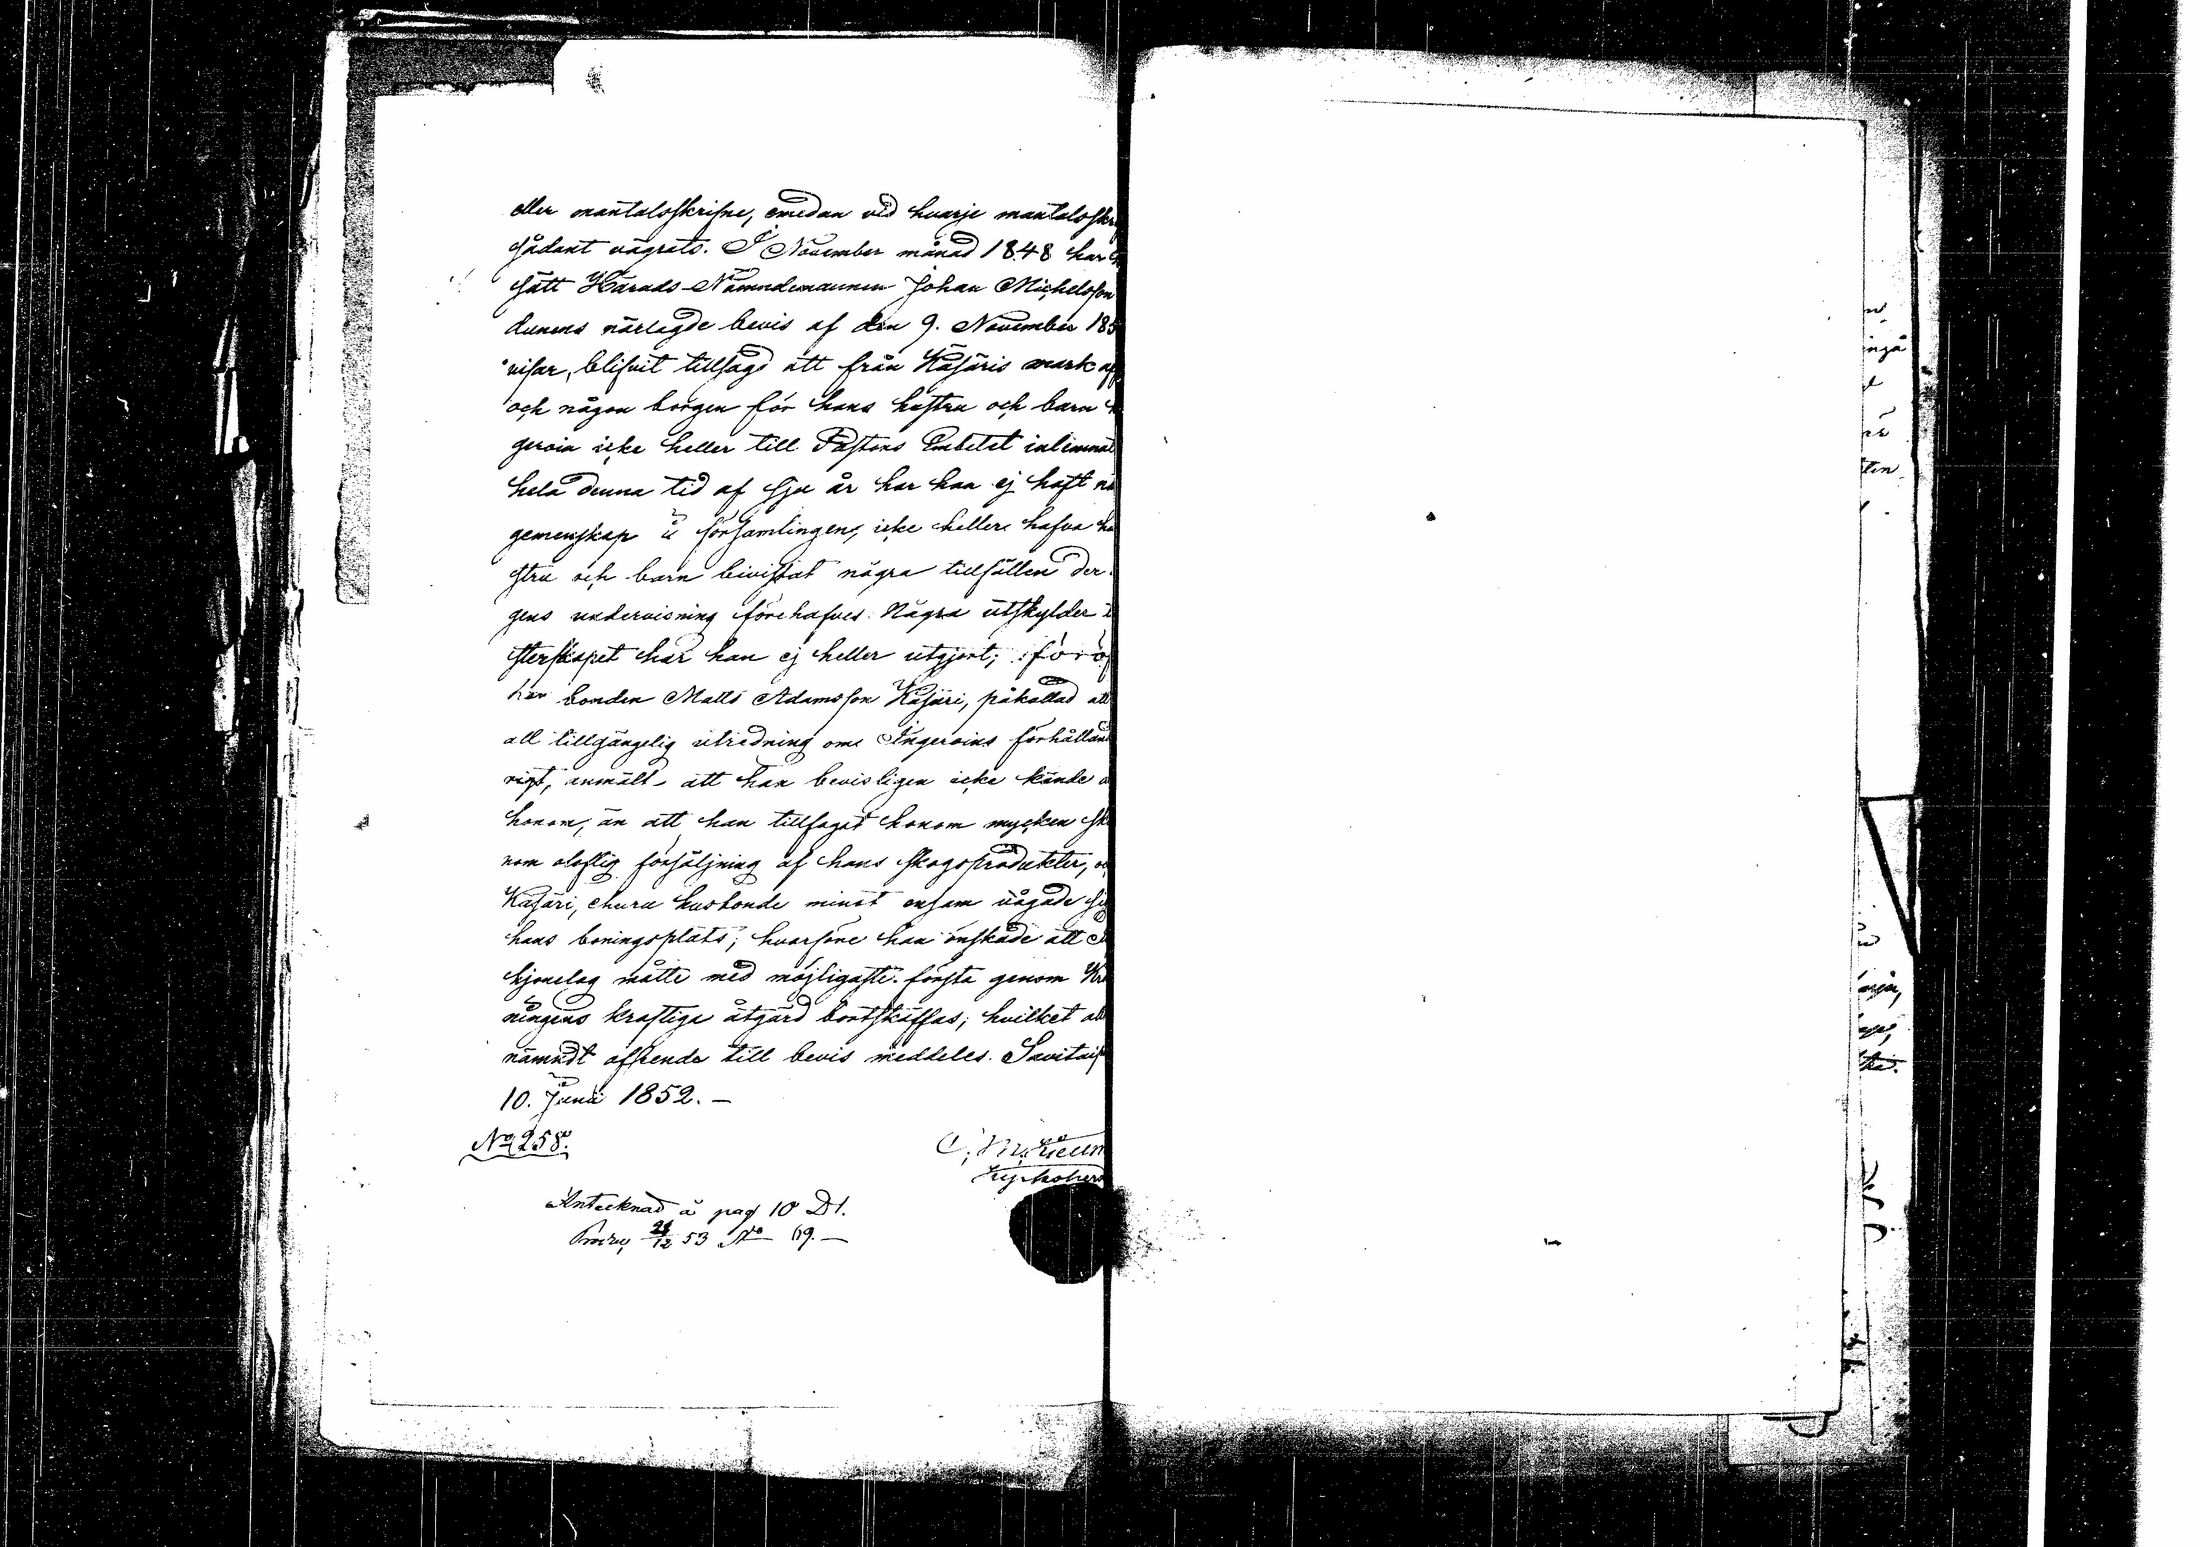 eller mantalsskrifne, emedan vid hvarje mantalsskr
sådant vägrats. I November månad 1848 har
sått Härads-Nämndemannen Johan Michelsson
dunens närlagde bevis af den 9. November 185
visar, blifvit tillsagd att från Käsäris mark af
och någon borgen för hans hustru och barn
geroin icke heller till Pastors Embetet inlemnat
hela denna tid af sju år har han ej haft nå
gemenskap i församlingen, icke heller hafva ha
stru och barn bivistat några tillfällen der
gens undervisning förehafves. Några utskylder
sterskapet har han ej heller utgjort; förö
har bonden Matts Adamsson Käsäri, påkallad att
all tillgängelig utredning om Ingeroins förhålland
rigt, anmält att han bevisligen icke kände
honom, än att han tillfogat honom mycken sk
nom oloflig försäljning af hans skogsprodukter, o
Käsäri, ehuru husbonde minst ensam vågade sig
hans boningsplats; hvarföre han önskade att
hjonelag måtte med möjligaste första genom Kr
ningens kraftiga åtgärd bortskaffas; hvilket all
nämndt afseende till bevis meddeles. Savitaip
10. Junii 1852. —
No 258.
C.
Kyrkoher
Antecknad å pag 10 D1.
21/12 53 No 69. —